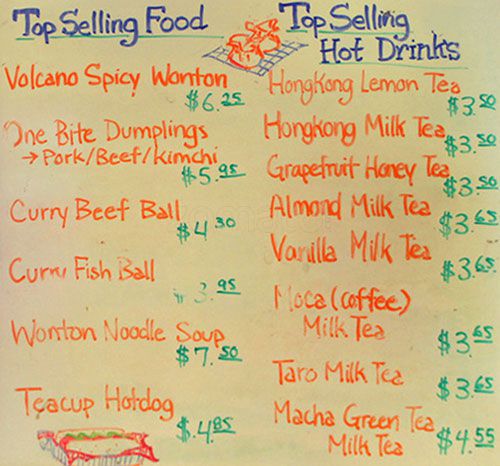 Top Selling Food
Volcano Spicy Wonton
$6.25
One Bite Dumplings
→Pork/Beef/Kimchi
$5.95
Curry Beef Ball
$4.30
Curry Fish Ball
$3.95
Wonton Noodle Soup
$7.50
Teacup Hotdog
$.4.85
Top Selling
Hot Drinks
HongKong Lemon Tea
$3.50
Hongkong Milk Tea
$3.50
Grapefruit Honey Tea
$3.50
Almond Milk Tea
$3.65
Vanilla Milk Tea
$3.65
Moca (coffee)
Milk Tea
$3.65
Taro Milk Tea
$3.65
Macha Green Tea
Milk Tea
$4.55